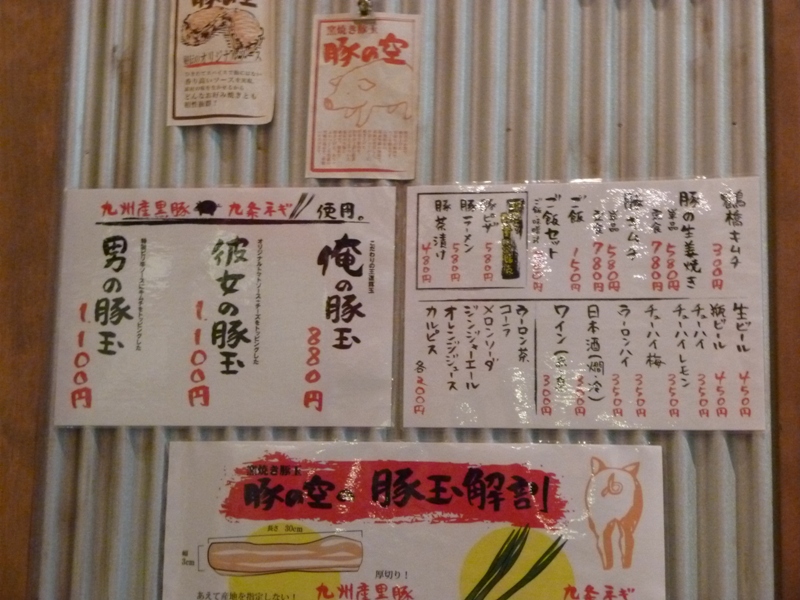 豚の空
窯焼き豚玉
豚の空
九州産黒豚 九条ネギ 使用。
こだわりの王道豚玉
俺の豚玉
880円
オリジナルトマトソース・チーズをトッピングした
彼女の豚玉
1,100円
男の豚玉
1,100円
鶴橋キムチ 300円
豚の生姜焼き
単品 580円
定食 780円
豚キムチ
単品 580円
定食 780円
ご飯 150円
ご飯セット
豚ピザ 580円
豚ラーメン 580円
豚茶漬け 480円
生ビール 450円
瓶ビール 450円
チューハイ 350円
チューハイレモン 350円
チューハイ梅 350円
ウーロンハイ 350円
日本酒(燗・冷)
ワイン 300円
ウーロン茶
コーラ
メロンソーダ
ジンジャーエール
オレンジジュース
カルピス
各200円
窯焼き豚玉
豚の空の 豚玉解剖
長さ 30cm
幅
3cm
厚切り!
あえて産地を指定しない!
九州産里豚
九条ネギ